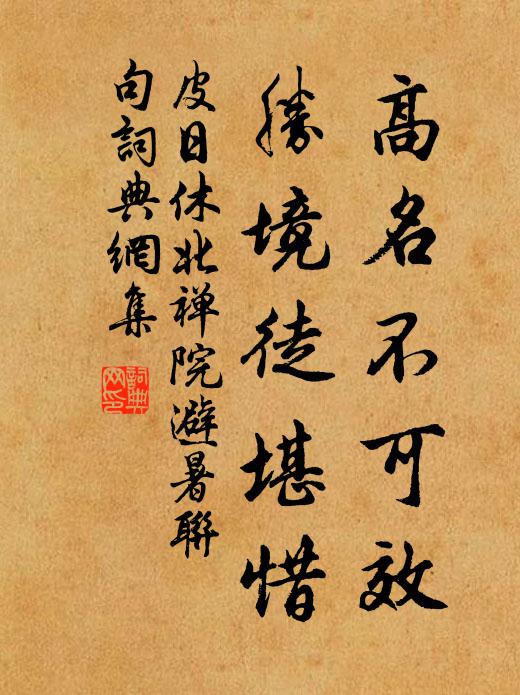 高名不可效
勝境徒堪惜
皮日休北禅院避暑聯
句詞典網集
詞典
网印